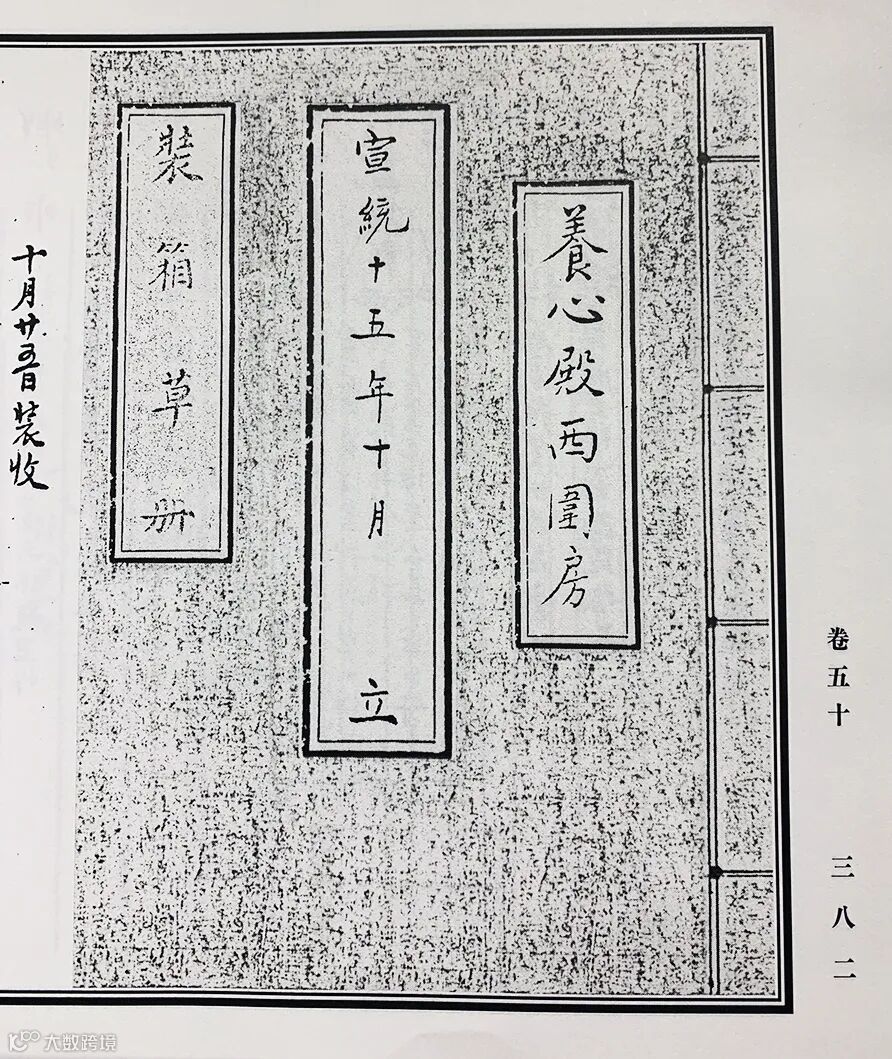 養心殿西圍房
宣統十五年十月 立
裝箱草册
十月廿五日裝收
卷五十
三八二
大数跨境